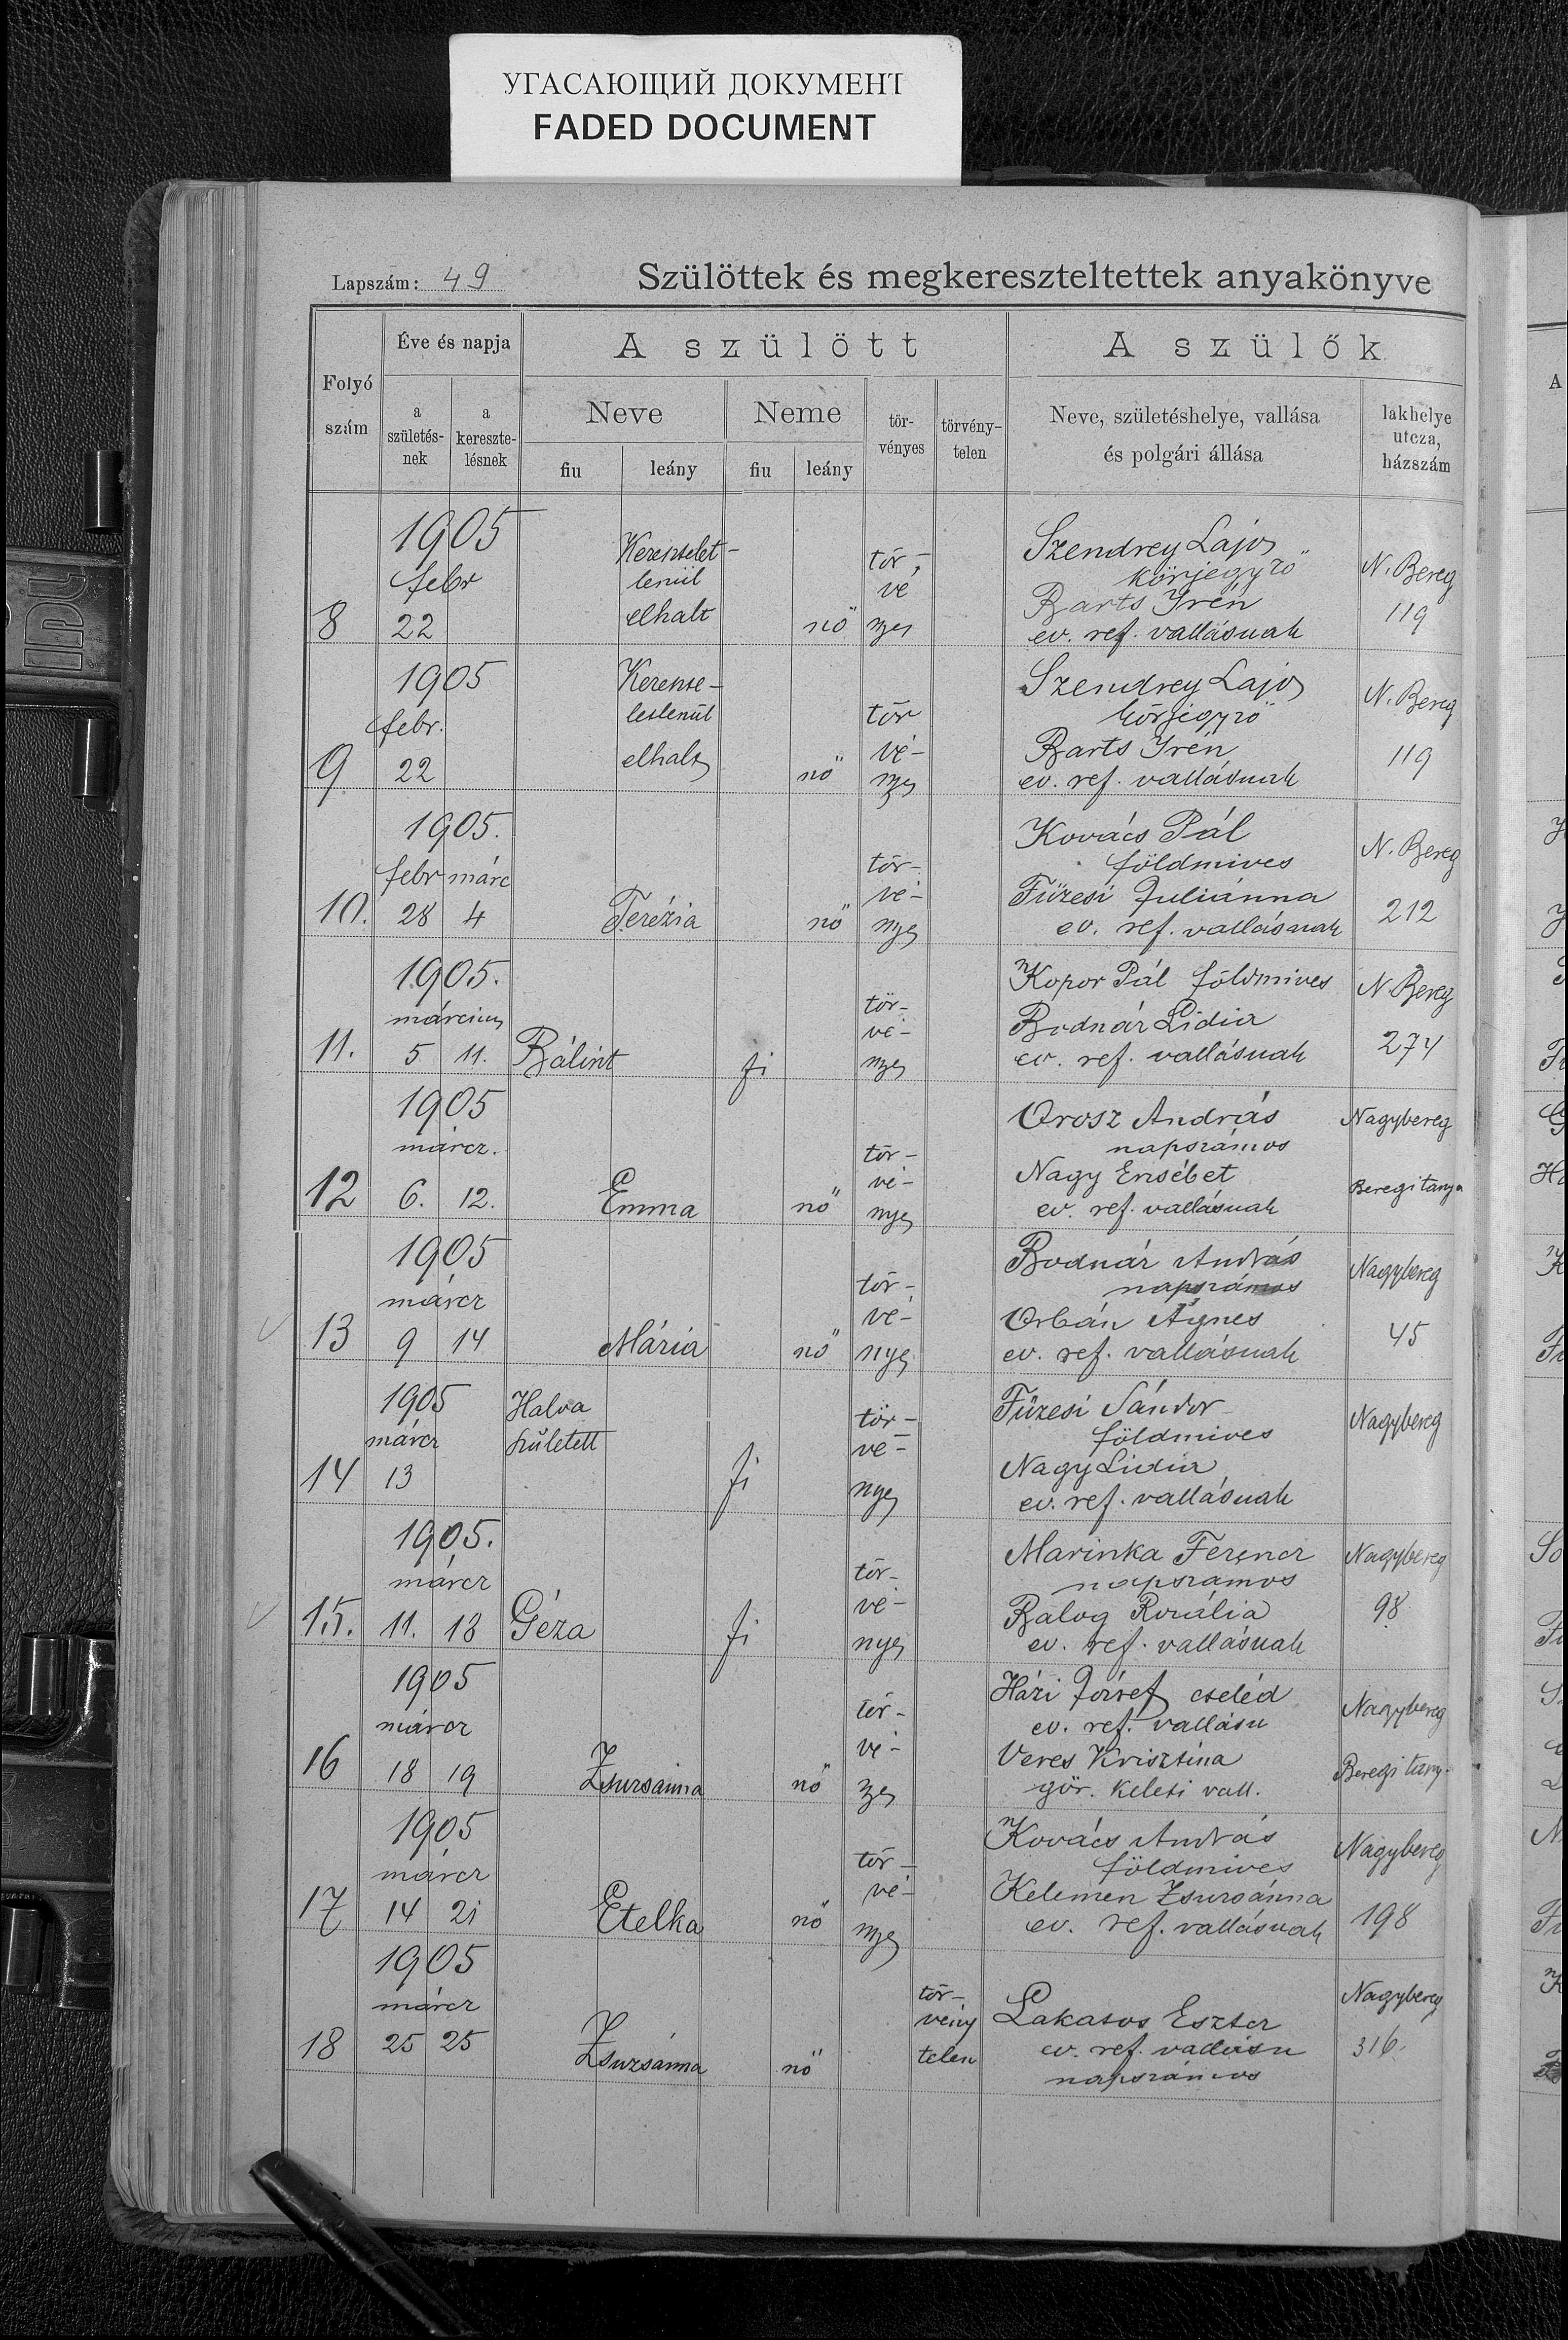 УГАСАЮЩИЙ ДОКУМЕНТ
FADED DOCUMENT
Lapszám: 49
Szülöttek és megkereszteltettek anyakönyve
Folyó szám
Éve és napja
a születés-nek
a kereszte-lésnek
A szülött
Neve
fiu
leány
Neme
fiu
leány
tör-vényes
törvény-telen
A szülők
Neve, születéshelye, vallása
és polgári állása
lakhelye
utcza,
házszám
8
1905
febr
22
Keresztelet-
lenül
elhalt
nő
tör-
vé
nyes
Szendrey Lajos
körjegyző
Barts Irén
ev. ref. vallásuak
N. Bereg
119
9
1905
febr.
22
Keresz­te-
letlenül
elhalt
nő
tör
vé-
nyes
Szendrey Lajos
körjegyző
Barts Irén
ev. ref. vallásuak
N. Bereg
119
10.
1905.
febr márc
28 4
Terézia
nő
tör-
vé-
nyes
Kovács Pál
földmives
Füzesi Juliánna
ev. ref. vallásuak
N. Bereg
212
11.
1905.
március
5 11.
Bálint
fi
tör-
vé-
nyes
Kopor Pál földmives
Bodnár Lidia
ev. ref. vallásuak
N. Bereg
274
12
1905
márcz.
6. 12.
Emma
nő
tör-
vé-
nyes
Orosz András
napszámos
Nagy Erzsébet
ev. ref. vallásuak
Nagybereg
Beregi tanya
13
1905
márcz
9 14
Mária
nő
tör-
vé-
nyes
Bodnár András
napszámos
Orbán Ágnes
ev. ref. vallásuak
Nagybereg
45
14
1905
márcz
13
Halva
született
fi
tör-
vé-
nyes
Füzesi Sándor
földmives
Nagy Lidia
ev. ref. vallásuak
Nagybereg
15.
1905.
márcz
11. 18
Géza
fi
tör-
vé-
nyes
Marinka Ferencz
napszámos
Balog Rozália
ev. ref. vallásuak
Nagybereg
98
16
1905
márcz
18 19
Zsuzsánna
nő
tör-
vé-
nyes
Házi József cseléd
ev. ref. vallásu
Veres Krisztina
gör. keleti vall.
Nagybereg
Beregi tany-
17
1905
márcz
14 21
Etelka
nő
tör-
vé-
nyes
Kovács András
földmives
Kelemen Zsuzsánna
ev. ref. vallásuak
Nagybereg
198
18
1905
márcz
25 25
Zsuzsánna
nő
tör-
vény
telen
Lakatos Eszter
ev. ref. vallásu
napszámos
Nagybereg
316.